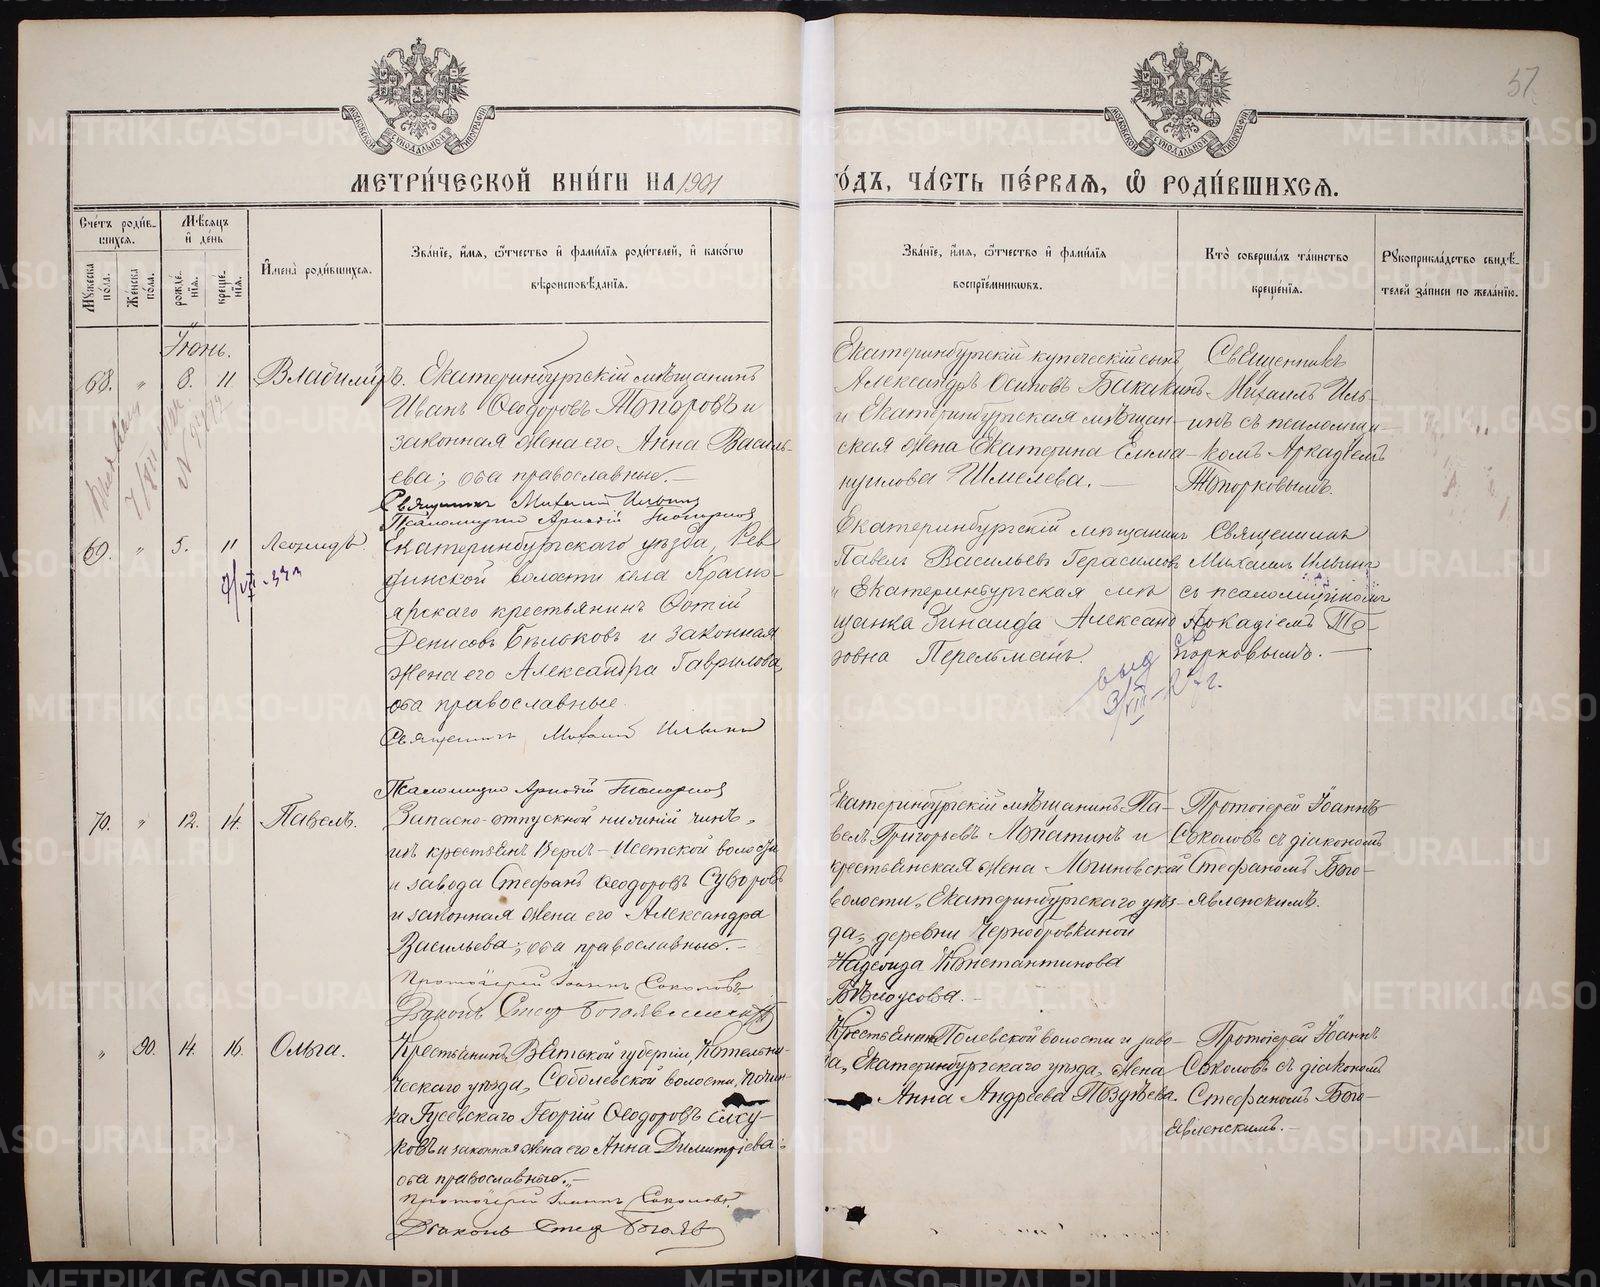 57
МОСКОВСКОЙ СѴНОДАЛЬНОЙ ТИПОГРАФІИ
МОСКОВСКОЙ СѴНОДАЛЬНОЙ ТИПОГРАФІИ
МЕТРИ́ЧЕСКОЙ КНИ́ГИ НА 1901
ГО́ДЪ, ЧА́СТЬ ПЕ́РВАЯ, Ѽ РОДИ́ВШИХСЯ.
Сче́тъ роди́в-
шихся.
Мѣ́сяцъ
и҆ де́нь
Мꙋ́жеска
по́ла.
Же́нска
по́ла.
рожде́-
нїя.
креще́-
нїя.
И҆мена̀ роди́вшихся.
Зва́нїе, и҆́мя, ѻ҆́тчество и҆ фами́лїя роди́телей, и҆ како́гѡ
вѣроисповѣ́данїя.
Зва́нїе, и҆́мя, ѻ҆́тчество и҆ фами́лїя
воспрїе́мниковъ.
Кто̀ соверша́лъ та́инство
креще́нїя.
Рꙋкоприкла́дство свидѣ́-
телей за́писи по жела́нїю.
Іюнь.
68. „ 8. 11 Владиміръ.
Екатеринбургскій мѣщанинъ
Иванъ Ѳеодоровъ Топоровъ и
законная жена его Анна Василь-
ева; оба православные.
Священникъ Михаилъ Ильинъ
Псаломщикъ Аркадій Топорковъ
Екатеринбургскій купеческій сынъ
Александръ Осиповъ Бакакинъ
и Екатеринбургская мѣщан-
ская жена Екатерина
Шмелева.
Священникъ
Михаилъ Иль-
инъ съ псаломщи-
комъ Аркадіемъ
Топорковымъ.
69. „ 5. 11 Леонидъ.
Екатеринбургскаго уѣзда, Рев
динской волости села Красно-
ярскаго крестьянинъ Фотій
Денисовъ Бѣльковъ и законная
жена его Александра Гаврилова,
оба православные.
Священникъ Михаилъ Ильинъ
Псаломщикъ Аркадій Топорковъ
Екатеринбургскій мѣщанинъ
Павелъ Васильевъ Герасимовъ
и Екатеринбургская мѣ
щанка Зинаида Александ
ровна Перельманъ.
Священникъ
Михаилъ Ильинъ
съ псаломщикомъ
Аркадіемъ То-
порковымъ.
выд
70. „ 12. 14. Павелъ.
Запасно-отпускной нижній чинъ,
изъ крестьянъ Верхъ-Исетской волости
и завода Стефанъ Ѳеодоровъ Суворовъ
и законная жена его Александра
Васильева; оба православные.
Протоіерей Іоаннъ Соколовъ
Діаконъ Стеф Богоявленскій
Екатеринбургскій мѣщанинъ Па-
велъ Григорьевъ Лопатинъ и
крестьянская жена Логиновской
волости, Екатеринбургскаго уѣз-
да, деревни Чернобровкиной
Надежда Константинова
Бѣлоусова.
Протоіерей Іоаннъ
Соколовъ съ діакономъ
Стефаномъ Бого-
явленскимъ.
„ 90. 14. 16. Ольга.
Крестьянинъ Вятской губерніи, Котельни-
ческаго уѣзда, Соболевской волости, почин-
ка Гусевскаго Георгій Ѳеодоровъ Елсу-
ковъ и законная жена его Анна Димитріева;
оба православные.
Протоіерей Іоаннъ Соколовъ
Діаконъ Стеф Богояв
Крестьянина Полевской волости и заво-
да, Екатеринбургскаго уѣзда, жена
Анна Андреева Позднѣева.
Протоіерей Іоаннъ
Соколовъ съ діакономъ
Стефаномъ Бого-
явленскимъ.
METRIKI.GASO-URAL.RU